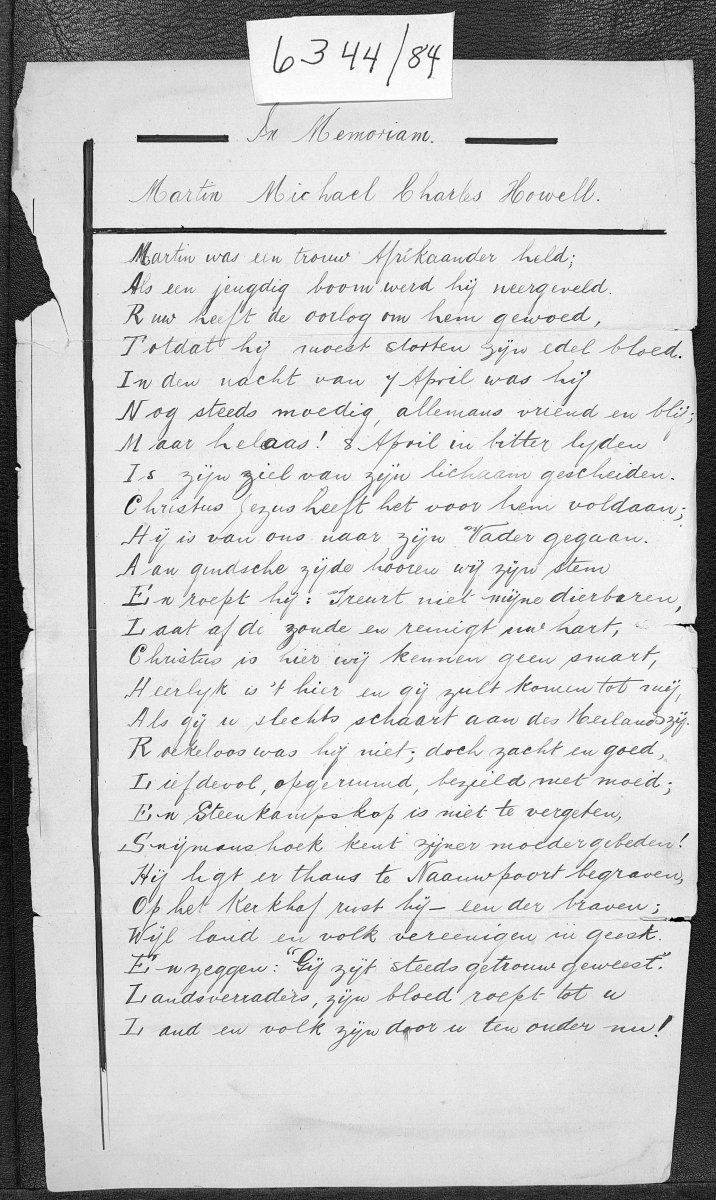 6344/84
In Memoriam.
Martin Michael Charles Howell.
Martin was een trouw Afrikaander held;
Als een jeugdig boom werd hij neergeveld.
Ruw heeft de oorlog om hem gewoed,
Totdat hij moest storten zijn edel bloed.
In den nacht van 7 April was hij
Nog steeds moedig, allemans vriend en blij;
Maar helaas! 8 April in bitter lyden
Is zijn ziel van zijn lichaam gescheiden.
Christus Jezus heeft het voor hem voldaan;
Hij is van ons naar zijn Vader gegaan.
Aan gindsche zijde hooren wij zijn stem
En roept hij: Treurt niet mijne dierbaren,
Laat af de zonde en reinigt uw hart,
Christus is hier wij kennen geen smart,
Heerlyk is 't hier en gij zult komen tot mij,
Als gij u slechts schaart aan des Heilands zij.
Roekeloos was hij niet; doch zacht en goed,
Liefdevol, opgeruimd, bezield met moed;
En Steenkampskop is niet te vergeten,
Snijmanshoek kent zijner moedergebeden!
Hij ligt er thans te Naauwpoort begraven,
Op het Kerkhof rust hij — een der braven;
Wijl land en volk vereenigen in geest.
En zeggen: "Gij zijt steeds getrouw geweest".
Landsverraders, zijn bloed roept tot u
Land en volk zijn door u ten onder nu!